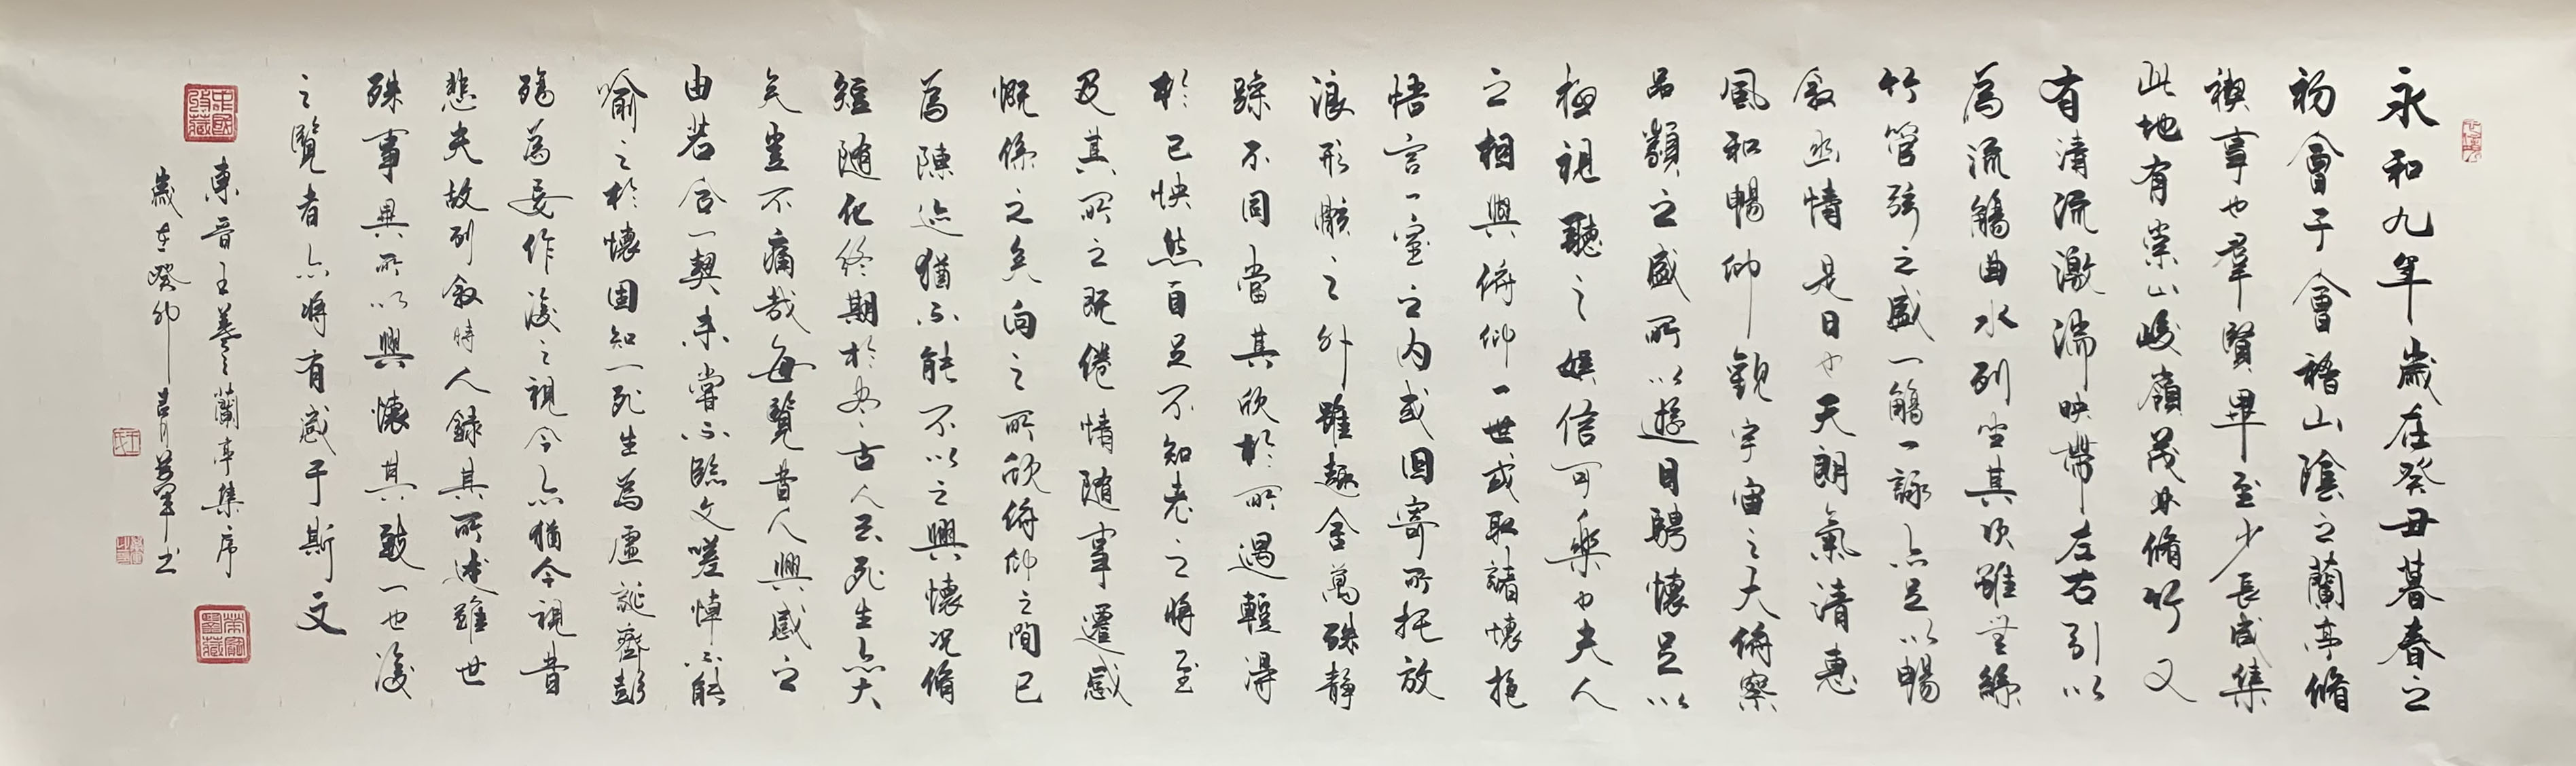 永和九年歲在癸丑暮春之
初會于會稽山陰之蘭亭脩
禊事也羣賢畢至少長咸集
此地有崇山峻嶺茂林脩竹又
有清流激湍映帶左右引以
為流觴曲水列坐其次雖無絲
竹管弦之盛一觴一詠亦足以暢
敘幽情是日也天朗氣清惠
風和暢仰觀宇宙之大俯察
品類之盛所以遊目騁懷足以
極視聽之娛信可樂也夫人
之相與俯仰一世或取諸懷抱
悟言一室之內或因寄所托放
浪形骸之外雖趣舍萬殊靜
躁不同當其欣於所遇輕得
於己快然自足不知老之將至
及其所之既倦情隨事遷感
慨係之矣向之所欣俯仰之間已
為陳迹猶不能不以之興懷況脩
短隨化終期於盡古人云死生亦大
矣豈不痛哉每覽昔人興感之
由若合一契未嘗不臨文嗟悼不能
喻之於懷固知一死生為虛誕齊彭
殤為妄作後之視今亦猶今視昔
悲夫故列敘時人錄其所述雖世
殊事異所以興懷其致一也後
之覽者亦將有感于斯文
東晉王羲之蘭亭集序
歲在癸卯